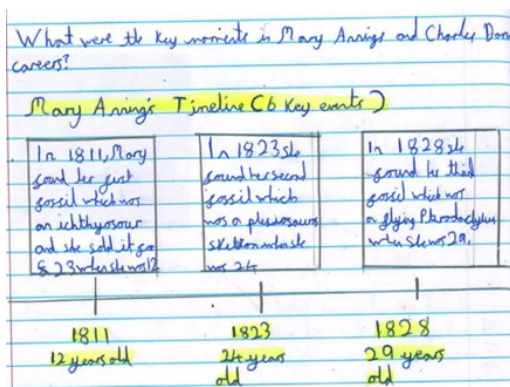 What were the key moments in Mary Annings and Charles Dar
careers?
Mary Anning's Timeline (6 key events)
In 1811, Mary
found her first
fossil which was
an ichthyosaur
and she sold it for
£23 when she was 12
In 1823 she
found her second
fossil which
was a plesiosaurs
skeleton when she
was 24
In 1828 she
found her third
fossil which was
a flying Pterodactylus
when she was 29.
1811
12 years old
1823
24 years
old
1828
29 years
old